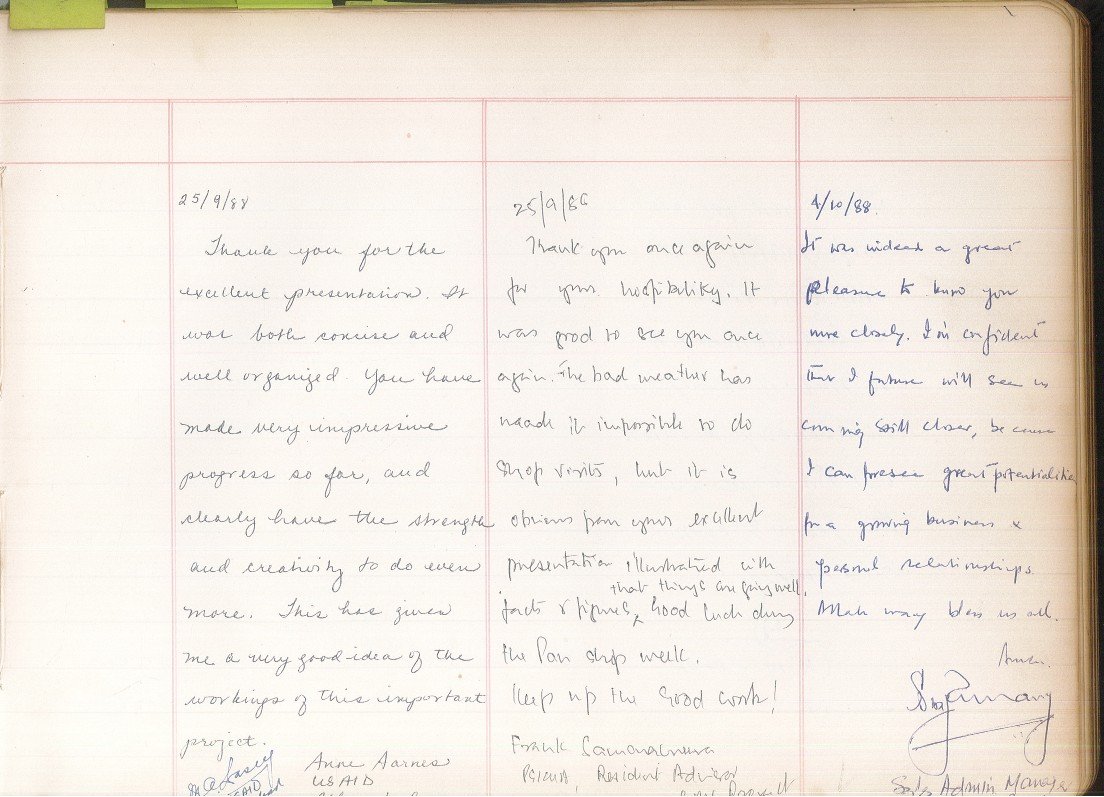 25/9/88
Thank you for the
excellent presentation. It
was both concise and
well organized. You have
made very impressive
progress so far, and
clearly have the strength
and creativity to do even
more. This has given
me a very good idea of the
workings of this important
project.
Anne Aarnes
USAID
25/9/88
Thank you once again
for your hospitality. It
was good to see you once
again. The bad weather has
made it impossible to do
shop visits, but it is
obvious from your excellent
presentation illustrated with
that things are going well.
facts & figures, Good luck during
the Pan shop week.
Keep up the Good work!
Frank Samaraweera
Resident Advisor
Project
4/10/88.
It was indeed a great
pleasure to know you
more closely. I'm confident
that I future will see us
coming still closer, because
I can foresee great potentialities
for a growing business &
personal relationships.
Allah may bless us all.
Amen.
Sales Admin Manager